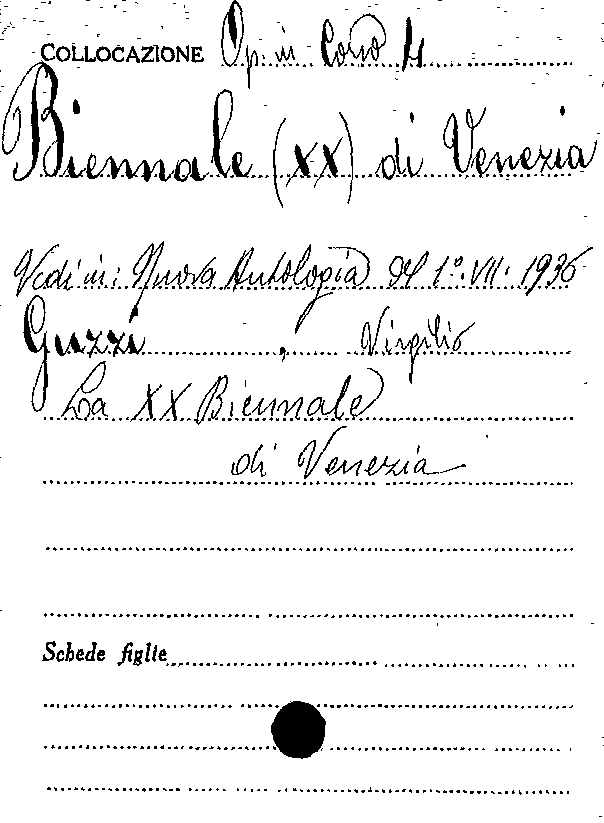 COLLOCAZIONE Op. in Corso 4
Biennale (XX) di Venezia
Vedi in: Nuova Antologia del 1º. VII. 1936
Guzzi, Virgilio
La XX Biennale
di Venezia
Schede figlie